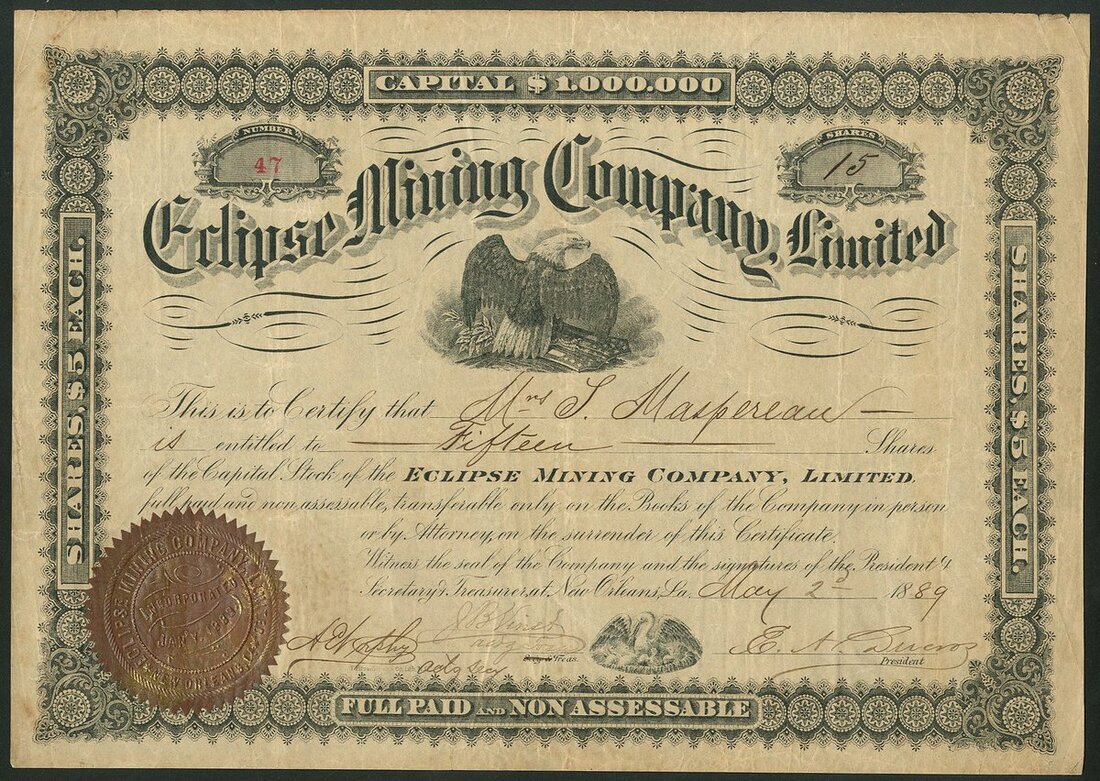 CAPITAL $1.000.000
NUMBER
47
SHARES
15
Eclipse Mining Company, Limited
SHARES, $5 EACH.
SHARES, $5 EACH.
This is to Certify that Mrs S. Maspereau
is entitled to Fifteen Shares
of the Capital Stock of the ECLIPSE MINING COMPANY, LIMITED
full paid and non assessable, transferable only on the Books of the Company in person
or by Attorney, on the surrender of this Certificate.
Witness the seal of the Company and the signatures of the President &
Secretary & Treasurer, at New Orleans, La. May 2d 1889
ECLIPSE MINING COMPANY, LIMITED
INCORPORATED
NEW ORLEANS
actg Secy
Treas.
President
FULL PAID AND NON ASSESSABLE